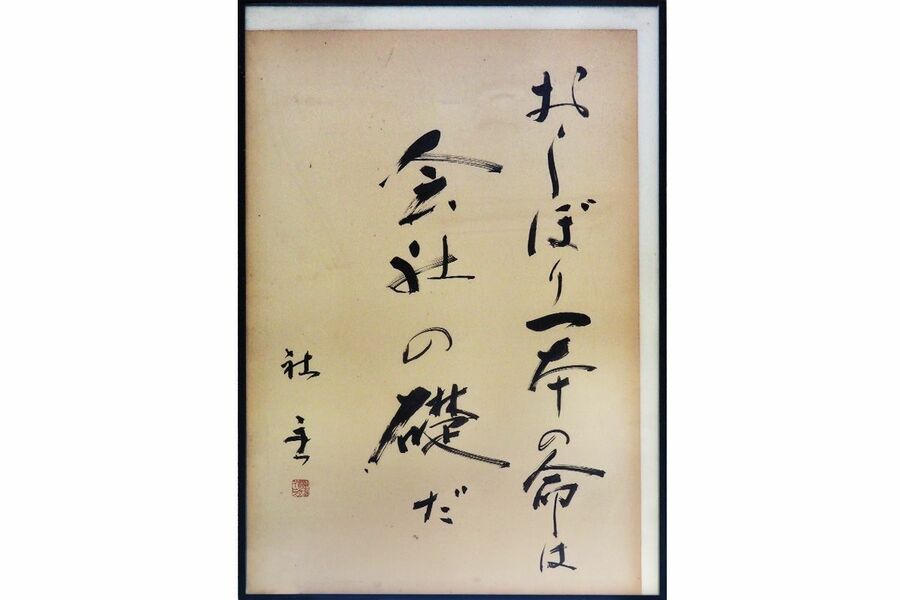 おしぼり一本の命は
会社の礎だ
社主